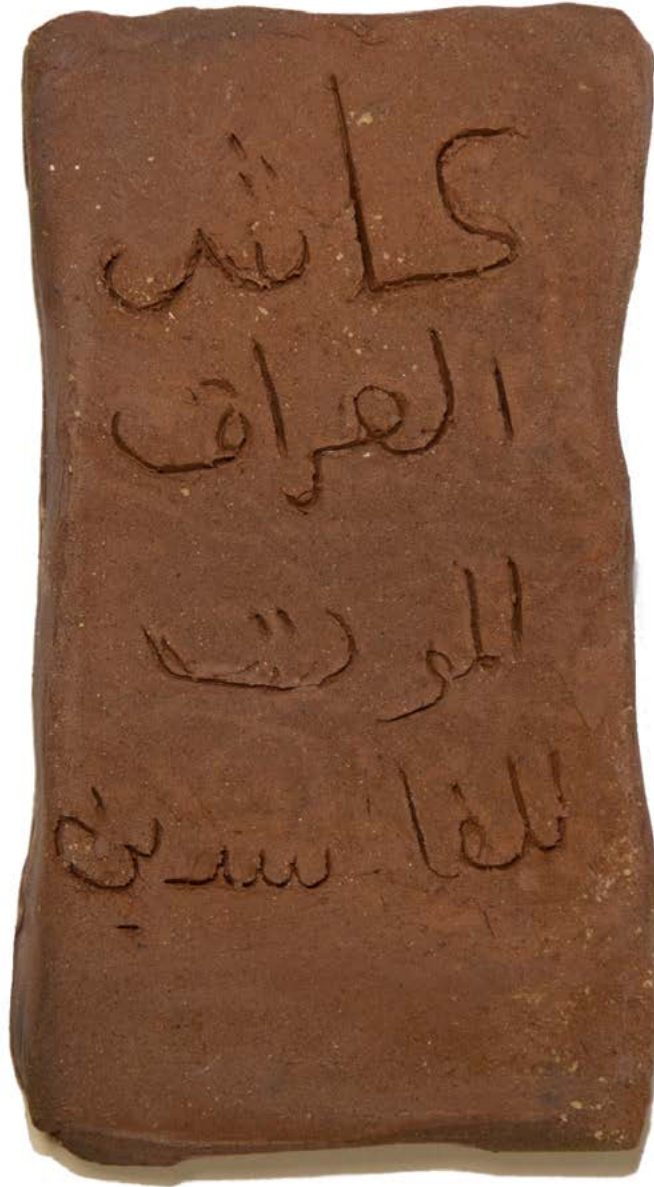 كاش
العراق
الموت
للفاسدين